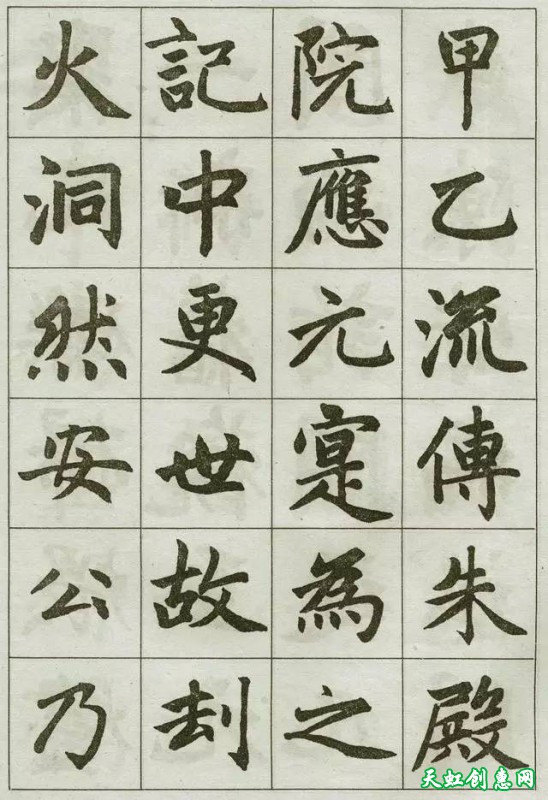 甲乙流傳朱殿
院應元寔為之
記中更世故刦
火洞然安公乃
天虹创惠网